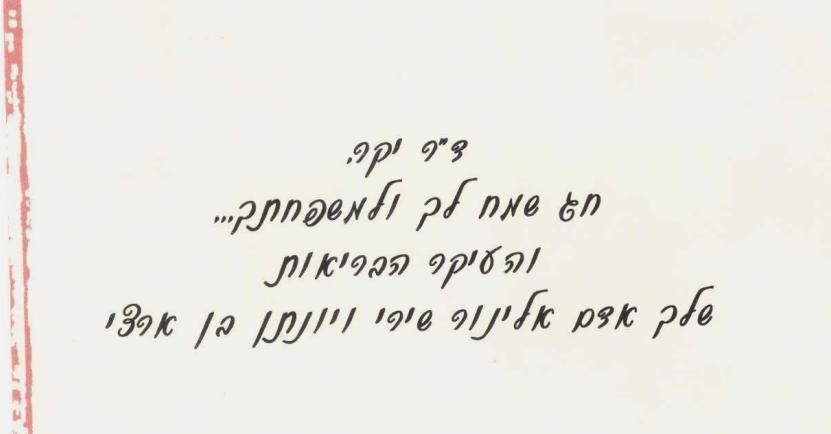 ד"ר יקר,
חג שמח לך ולמשפחתך...
והעיקר הבריאות
שלך אדם אלינור שירי ויונתן בן ארצי